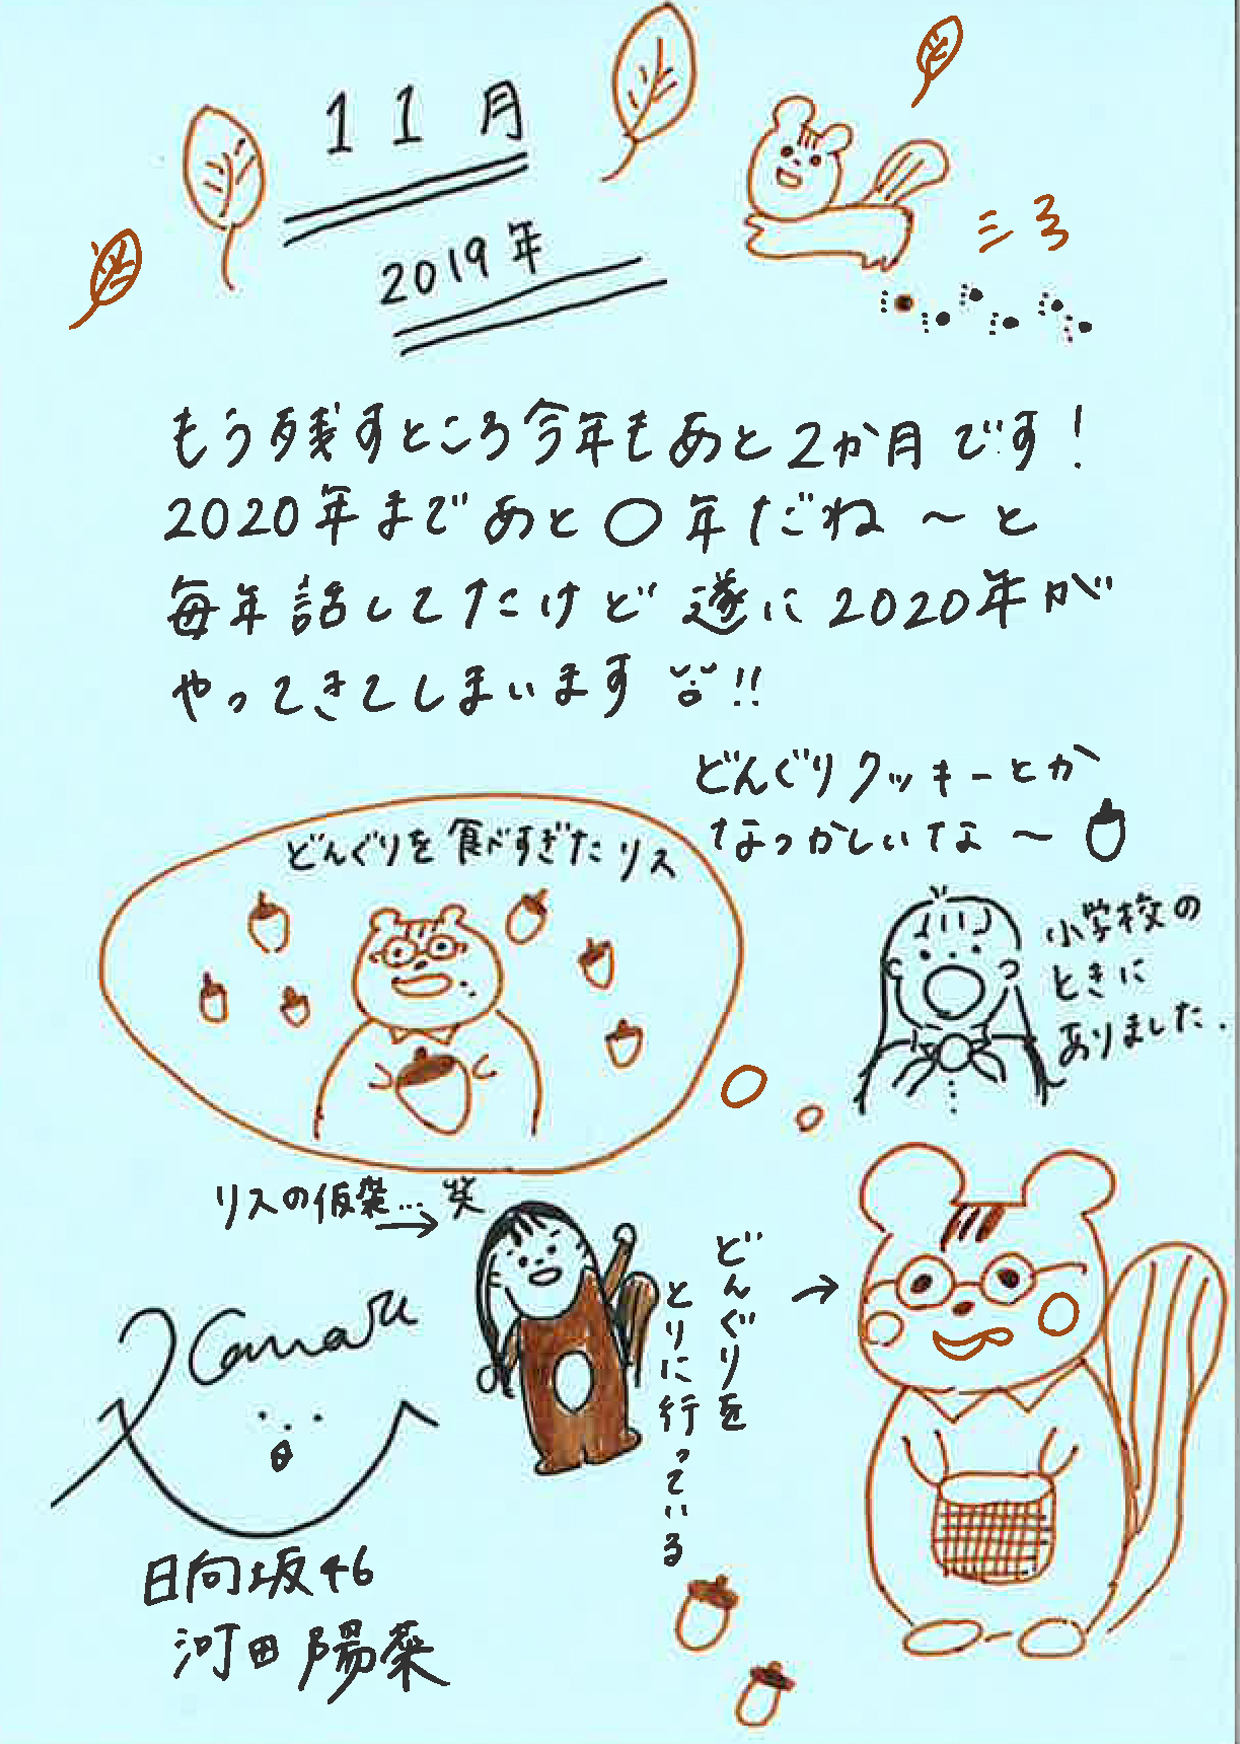 11月
2019年
もう残すところ今年もあと2か月です!
2020年まであと〇年だね〜と
毎年話してたけど遂に2020年が
やってきてしまいます!!
どんぐりクッキーとか
なつかしいな〜
どんぐりを食べすぎたリス
小学校の
ときに
ありました.
リスの仮装…笑
どんぐりを
とりに行っている
Kawata
日向坂46
河田陽菜